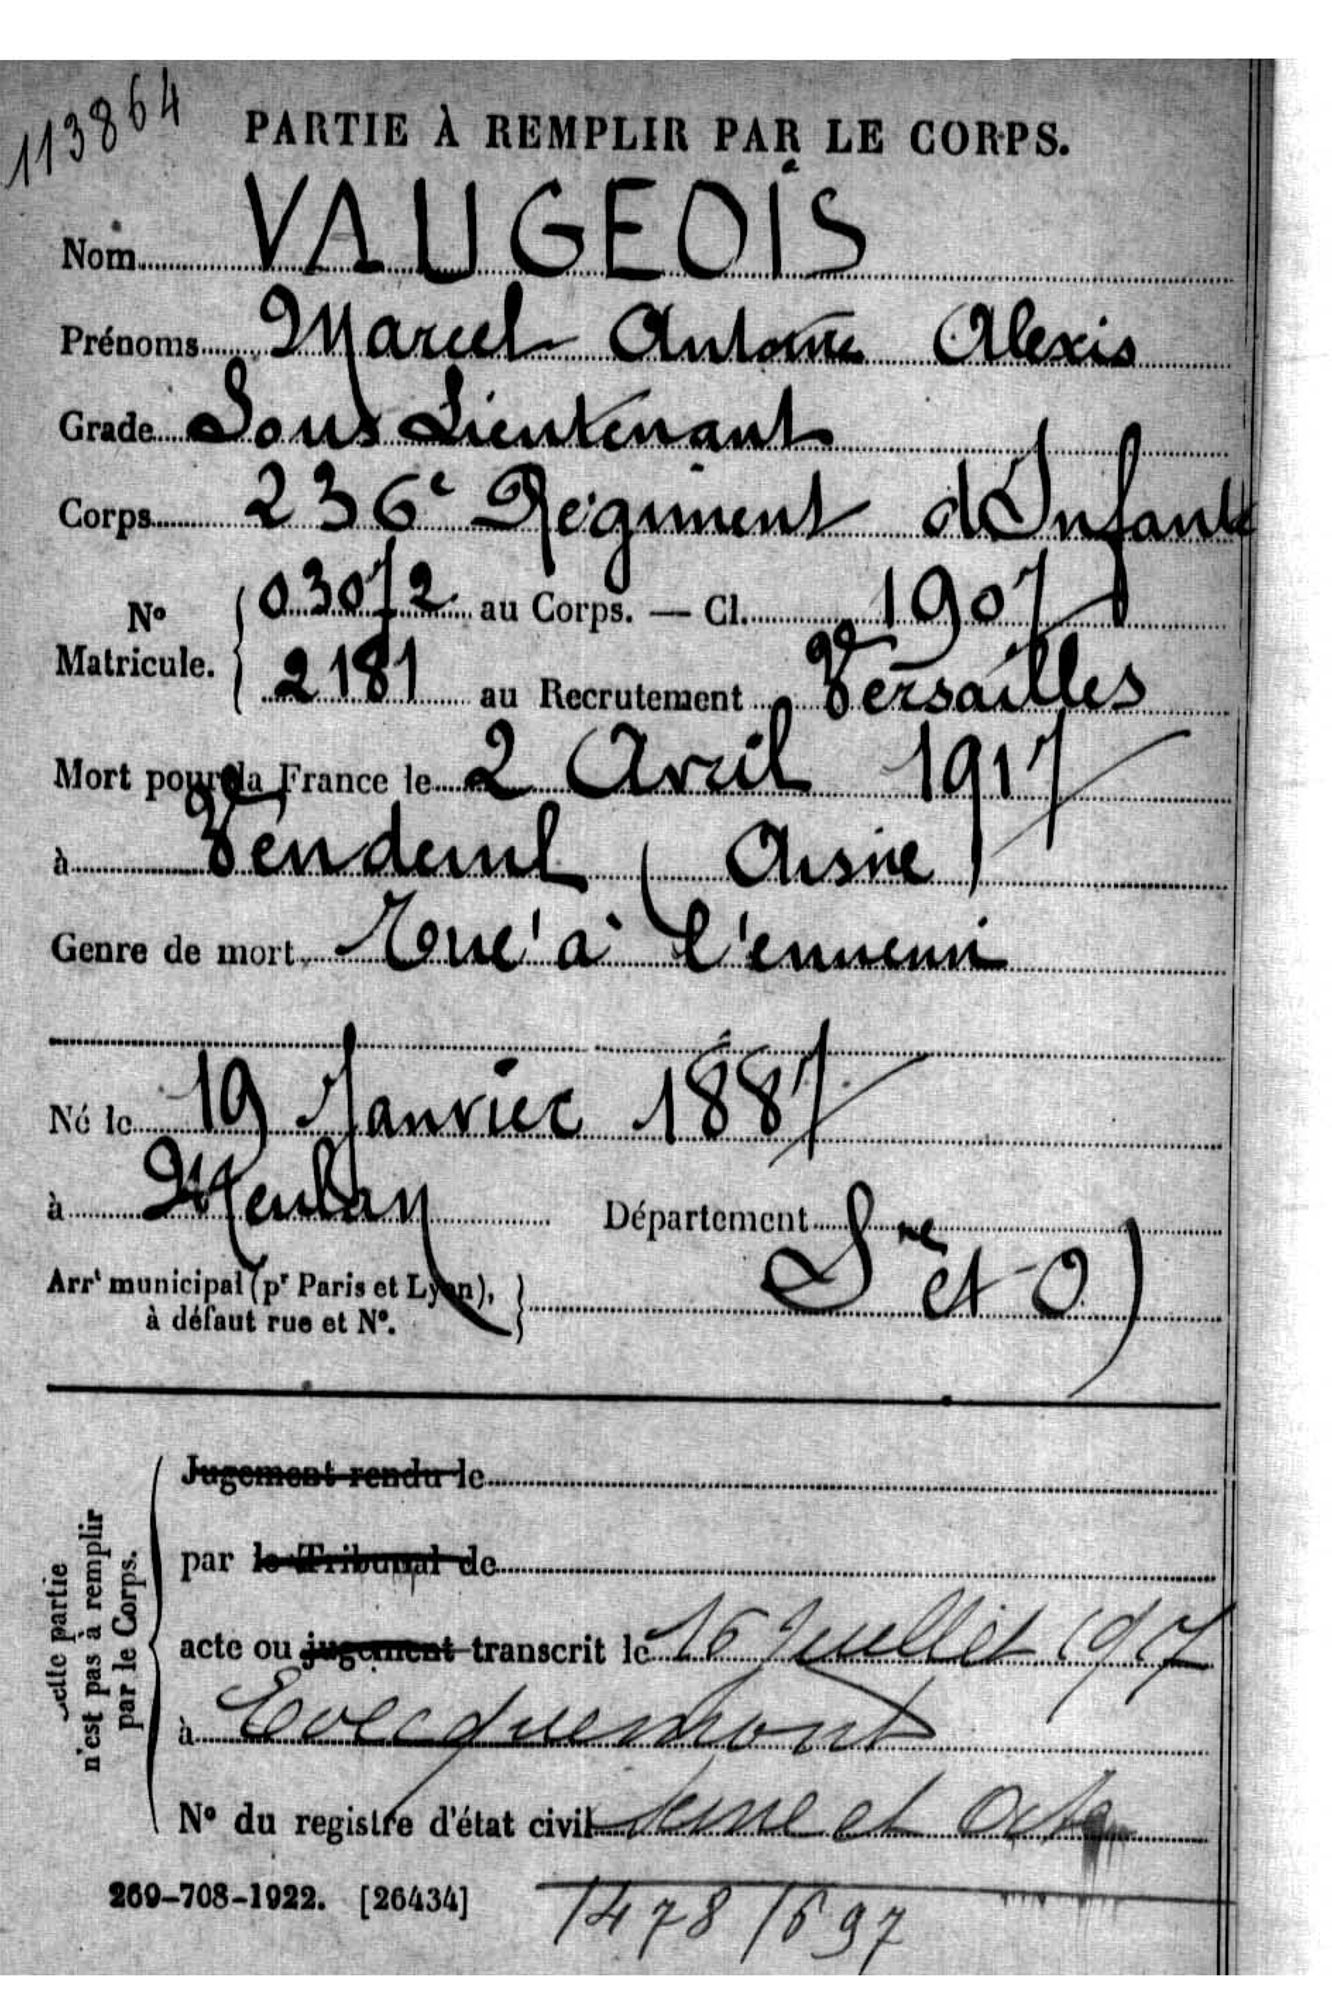 113864
PARTIE À REMPLIR PAR LE CORPS.
Nom VAUGEOIS
Prénoms Marcel Antoine Alexis
Grade Sous Lieutenant
Corps 236e Régiment d'Infante
No Matricule. 03072 au Corps. — Cl. 1907
2181 au Recrutement Versailles
Mort pour la France le 2 Avril 1917
à Vendeuil (Aisne)
Genre de mort Tué à l'ennemi
Né le 19 Janvier 1887
à Meulan Département (Sne et O)
Arrt municipal (pr Paris et Lyon),
à défaut rue et No.
Cette partie
n'est pas à remplir
par le Corps.
Jugement rendu le
par le Tribunal de
acte ou jugement transcrit le 16 Juillet 1917
à Evecquemont
No du registre d'état civil Seine et Oise
269-708-1922. [26434]
1478/697